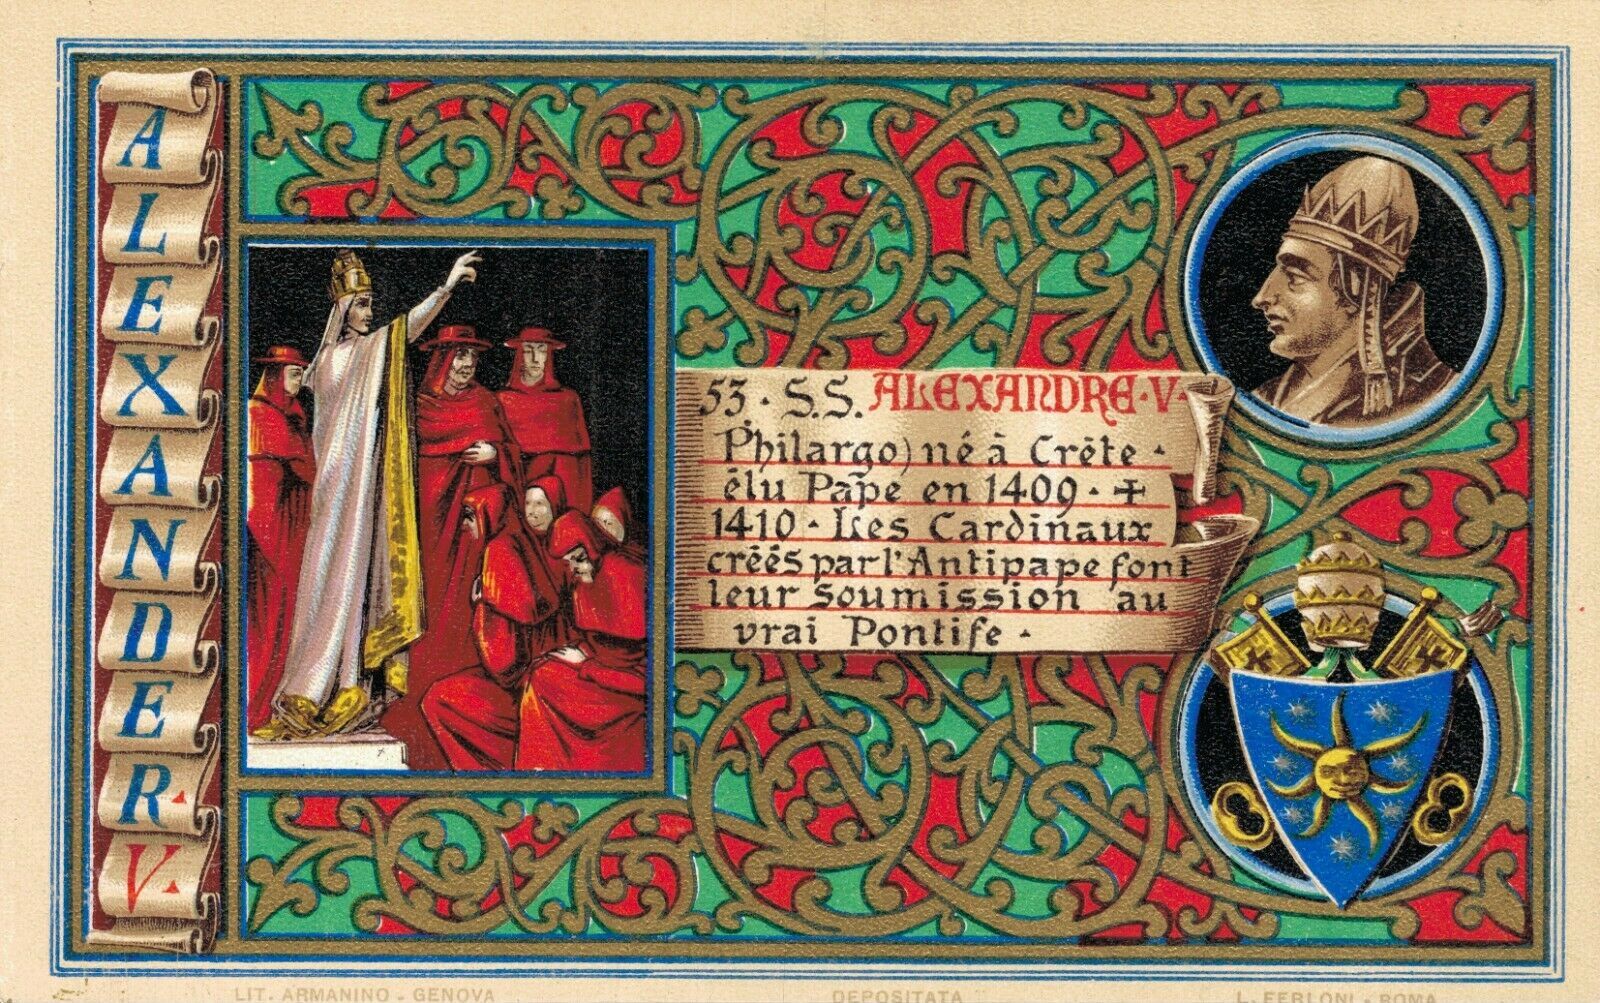 ALEXANDER·V·
53·S.S. ALEXANDRE·V·
Philargo) né à Crête·
élu Pape en 1409·✝
1410·Les Cardinaux
créés par l'Antipape font
leur soumission au
vrai Pontife·
LIT. ARMANINO - GENOVA
DEPOSITATA
L. FERLONI - ROMA